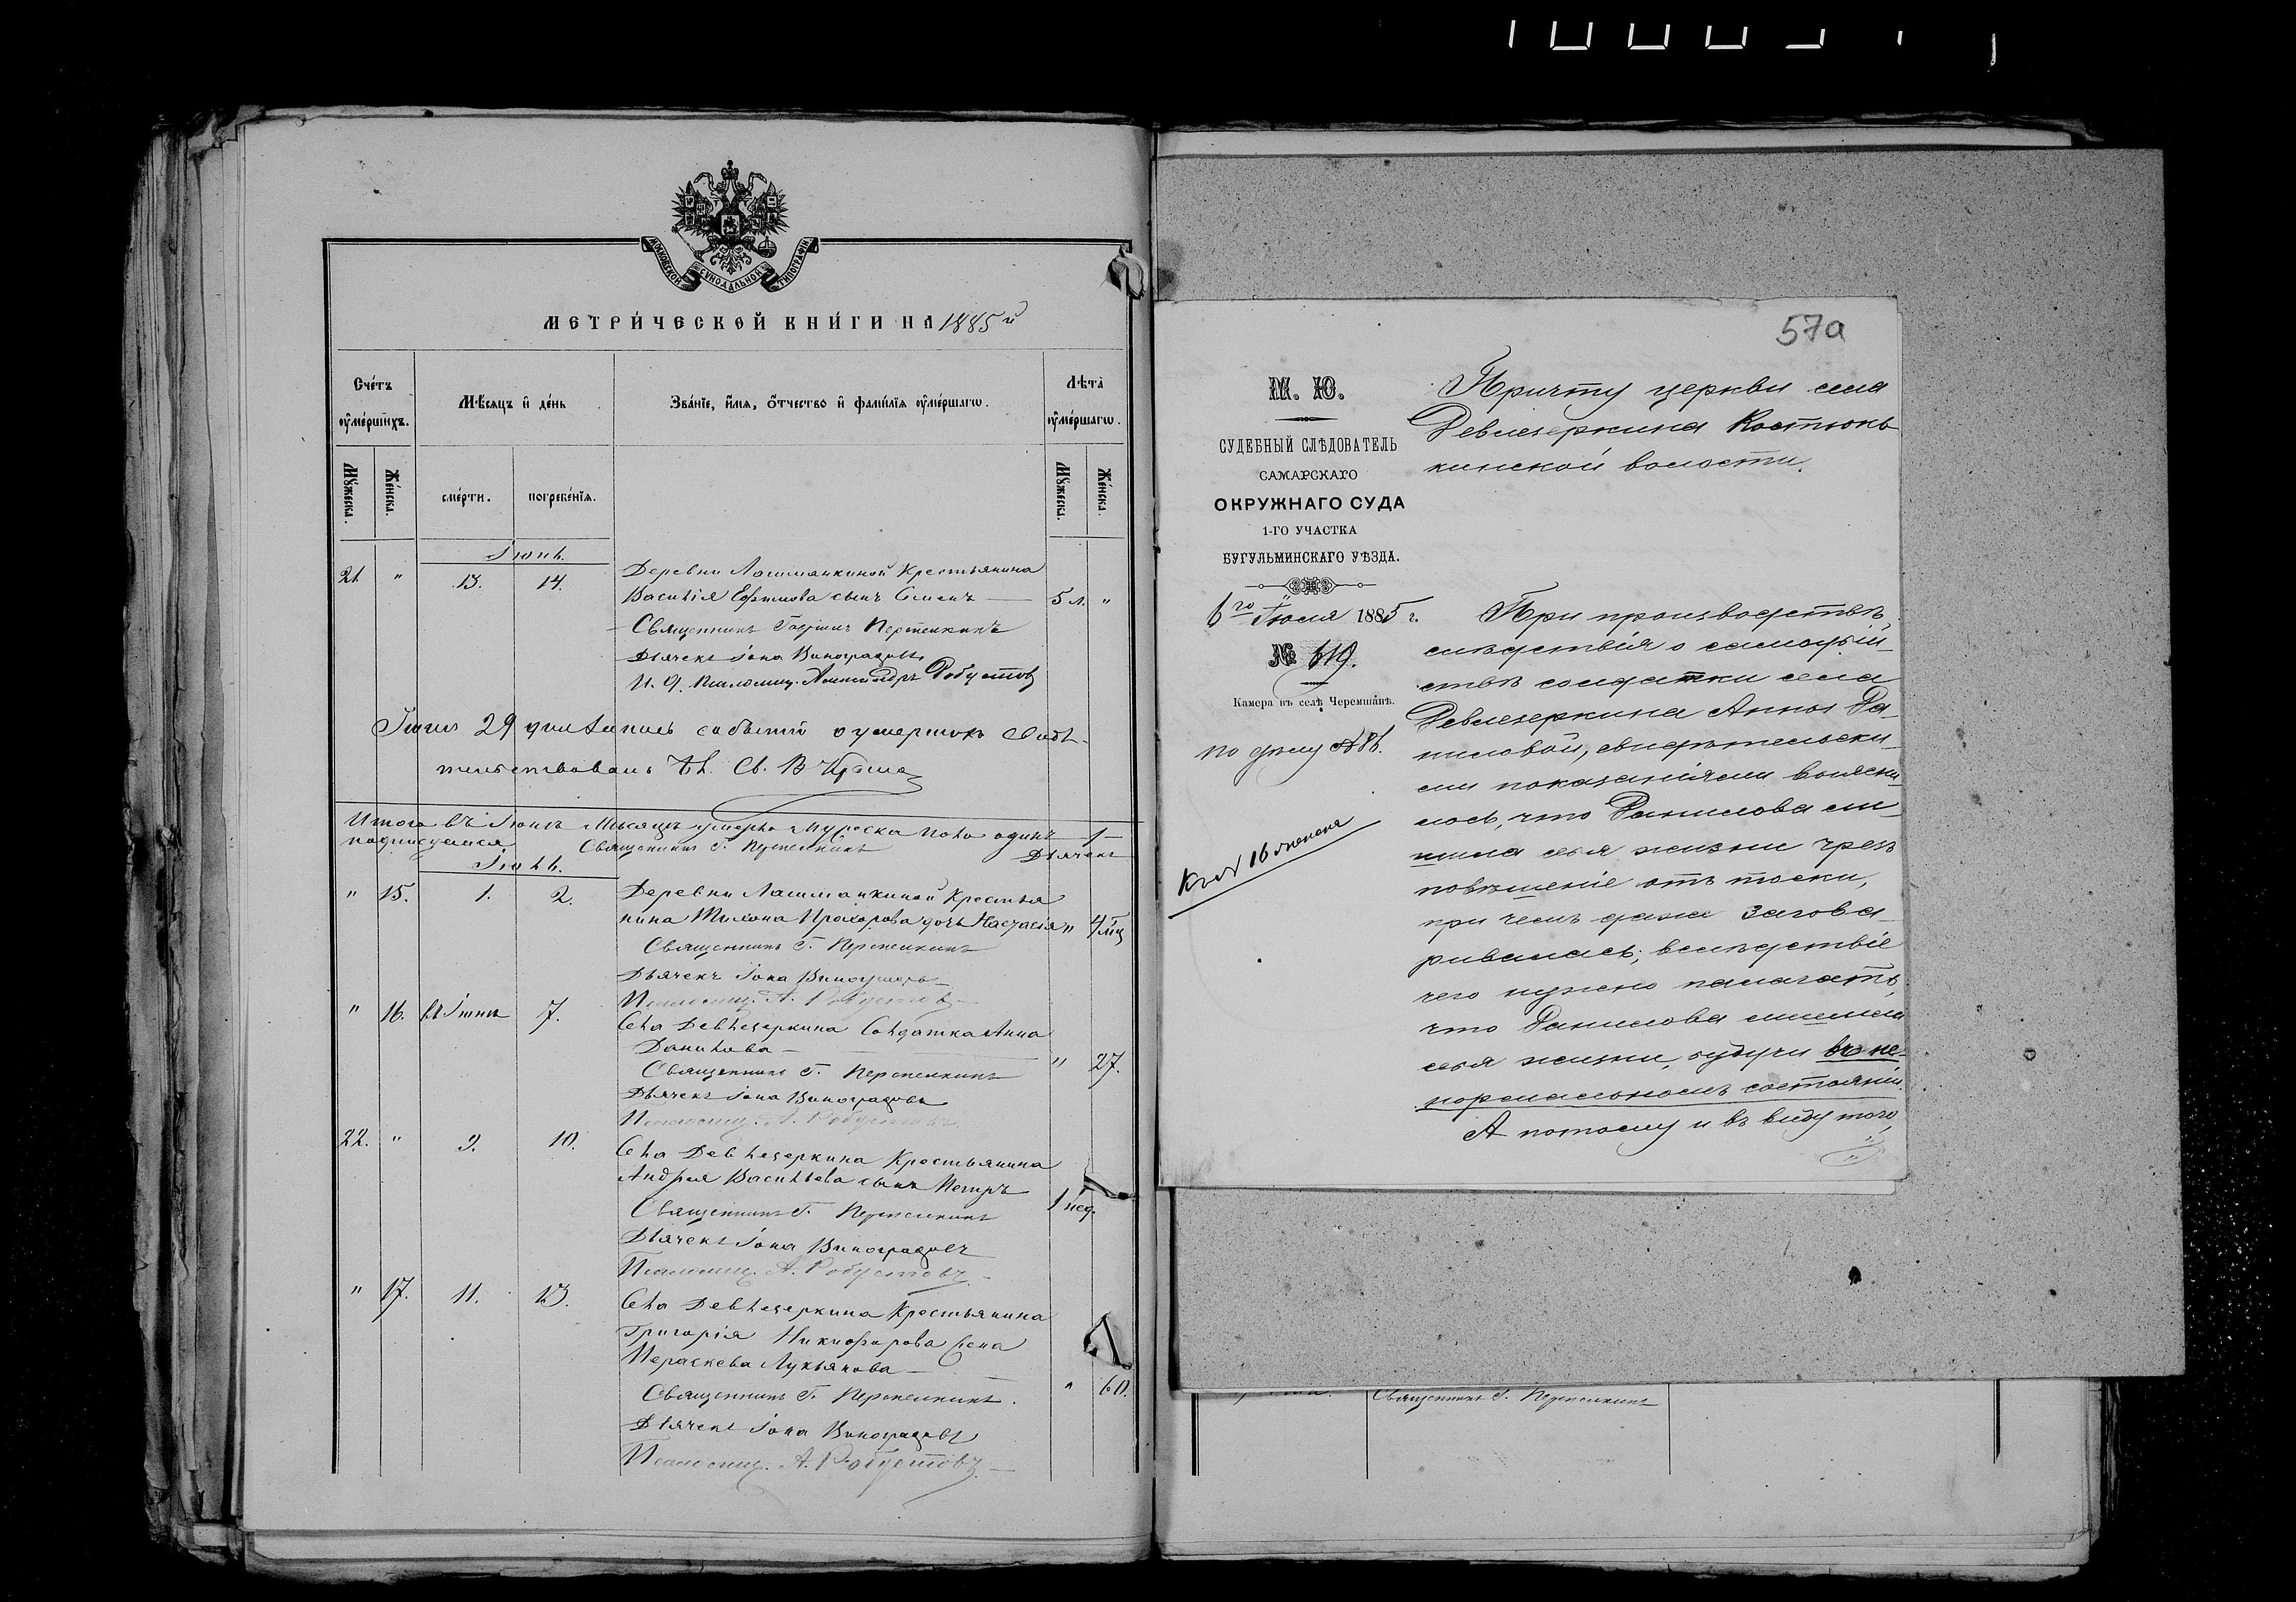 МОСКОВСКОЙ СѴНОДАЛЬНОЙ ТИПОГРАФІИ
МЕТРИЧЕСКОЙ КНИГИ НА 1885 й
Счетъ оумершихъ.
Мѣсяцъ и день
Званіе, имя, отчество и фамиліа оумершагω.
Лѣта оумершагω.
Мужеска.
Женска.
смерти.
погребеніѧ.
Мужеска.
Женска.
Іюнь.
21. " 13. 14. Деревни Лашманкиной Крестьянина
Василія Ефимова сынъ Семенъ — 5 л. "
Священникъ Г. Перепелкинъ
Дьячекъ Іона Виноградовъ
И. д. Псаломщ. Александръ Робустовъ
29 дня запись событій о умершихъ свидѣ-
тельствовалъ Св. В.
Итого въ Іюнѣ Мѣсяцѣ умерло Мужеска пола одинъ — 1 —
подписуемся Священникъ Г. Перепелкинъ Дьячекъ
Іюль.
" 15. 1. 2. Деревни Лашманкиной Крестья
нина Тихона Прохорова дочь Настасія " 4 мц
Священникъ Г. Перепелкинъ
Дьячекъ Іона Виноградовъ
Псаломщ. А. Робустовъ
" 16. 7. Села Девлезеркина Солдатка Анна
Данилова — " 27.
Священникъ Г. Перепелкинъ
Дьячекъ Іона Виноградовъ
Псаломщ. А. Робустовъ
22. " 9. 10. Села Девлезеркина Крестьянина
Андрея Васильева сынъ Петръ 1 нед.
Священникъ Г. Перепелкинъ
Дьячекъ Іона Виноградовъ
Псаломщ. А. Робустовъ
" 17. 11. 13. Села Девлезеркина Крестьянина
Григорія Никифорова жена
Параскева Лукьянова — " 60.
Священникъ Г. Перепелкинъ.
Дьячекъ Іона Виноградовъ
Псаломщ. А. Робустовъ
57а
М. Ю.
СУДЕБНЫЙ СЛѢДОВАТЕЛЬ
САМАРСКАГО
ОКРУЖНАГО СУДА
1-ГО УЧАСТКА
БУГУЛЬМИНСКАГО УѢЗДА.
6го Іюля 1885 г.
№ 619.
Камера въ селѣ Черемшанѣ.
по дѣлу № 86.
Причту церкви села
Девлезеркина Костюнь
кинской волости.
При производствѣ
слѣдствія о самоубій
ствѣ солдатки села
Девлезеркина Анны Да-
ниловой, свидѣтельски
ми показаніями выясни
лось, что Данилова ли
шила себя жизни чрезъ
повѣшеніе отъ тоски,
при чемъ даже загова
ривалась; вслѣдствіе
чего нужно палагать,
что Данилова лишила
себя жизни, будучи въ не-
нормальномъ состояніи.
А потому и въ виду того,
Священникъ Г. Перепелкинъ